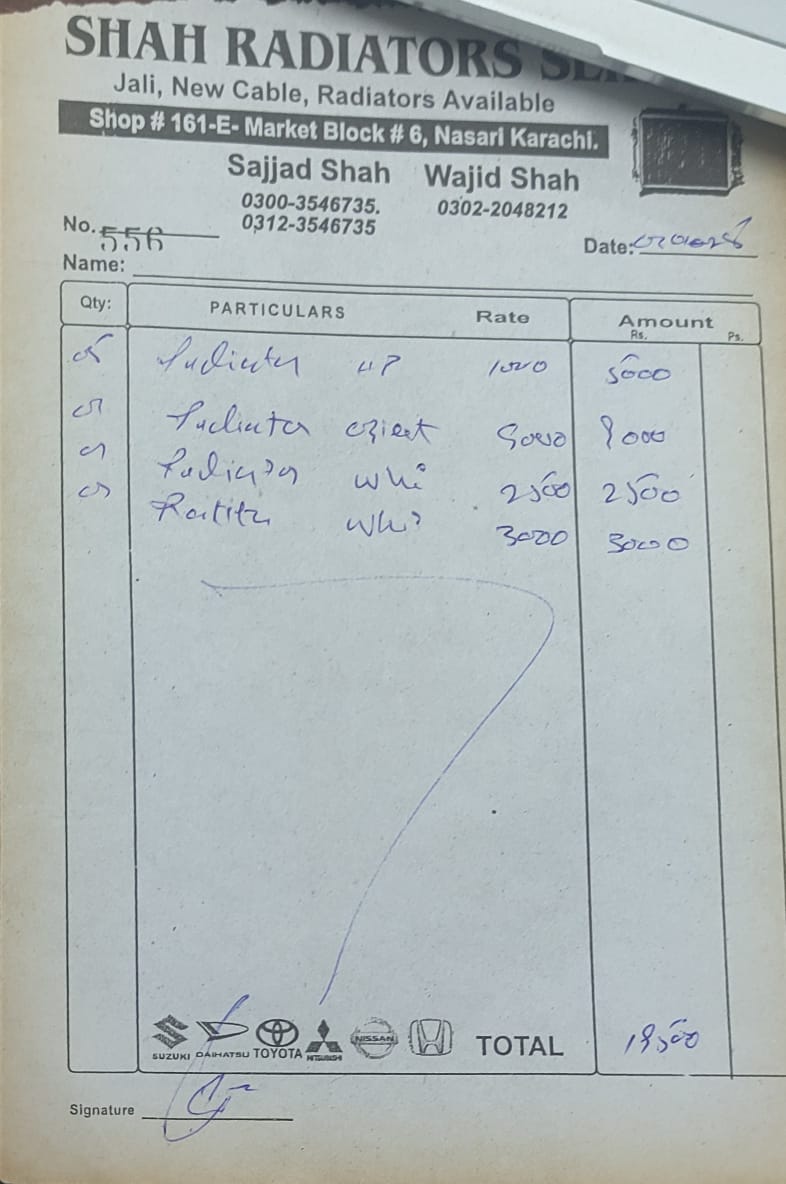 SHAH RADIATORS
Jali, New Cable, Radiators Available
Shop # 161-E- Market Block # 6, Nasari Karachi.
Sajjad Shah Wajid Shah
0300-3546735. 0302-2048212
0312-3546735
No. 556
Date:
Name:
Qty: PARTICULARS Rate Amount
Rs. Ps.
05 Radiator 1000 5000
Radiator 9000 9000
Radiator 2500 2500
3000 3000
SUZUKI DAIHATSU TOYOTA MITSUBISHI NISSAN TOTAL 19500
Signature